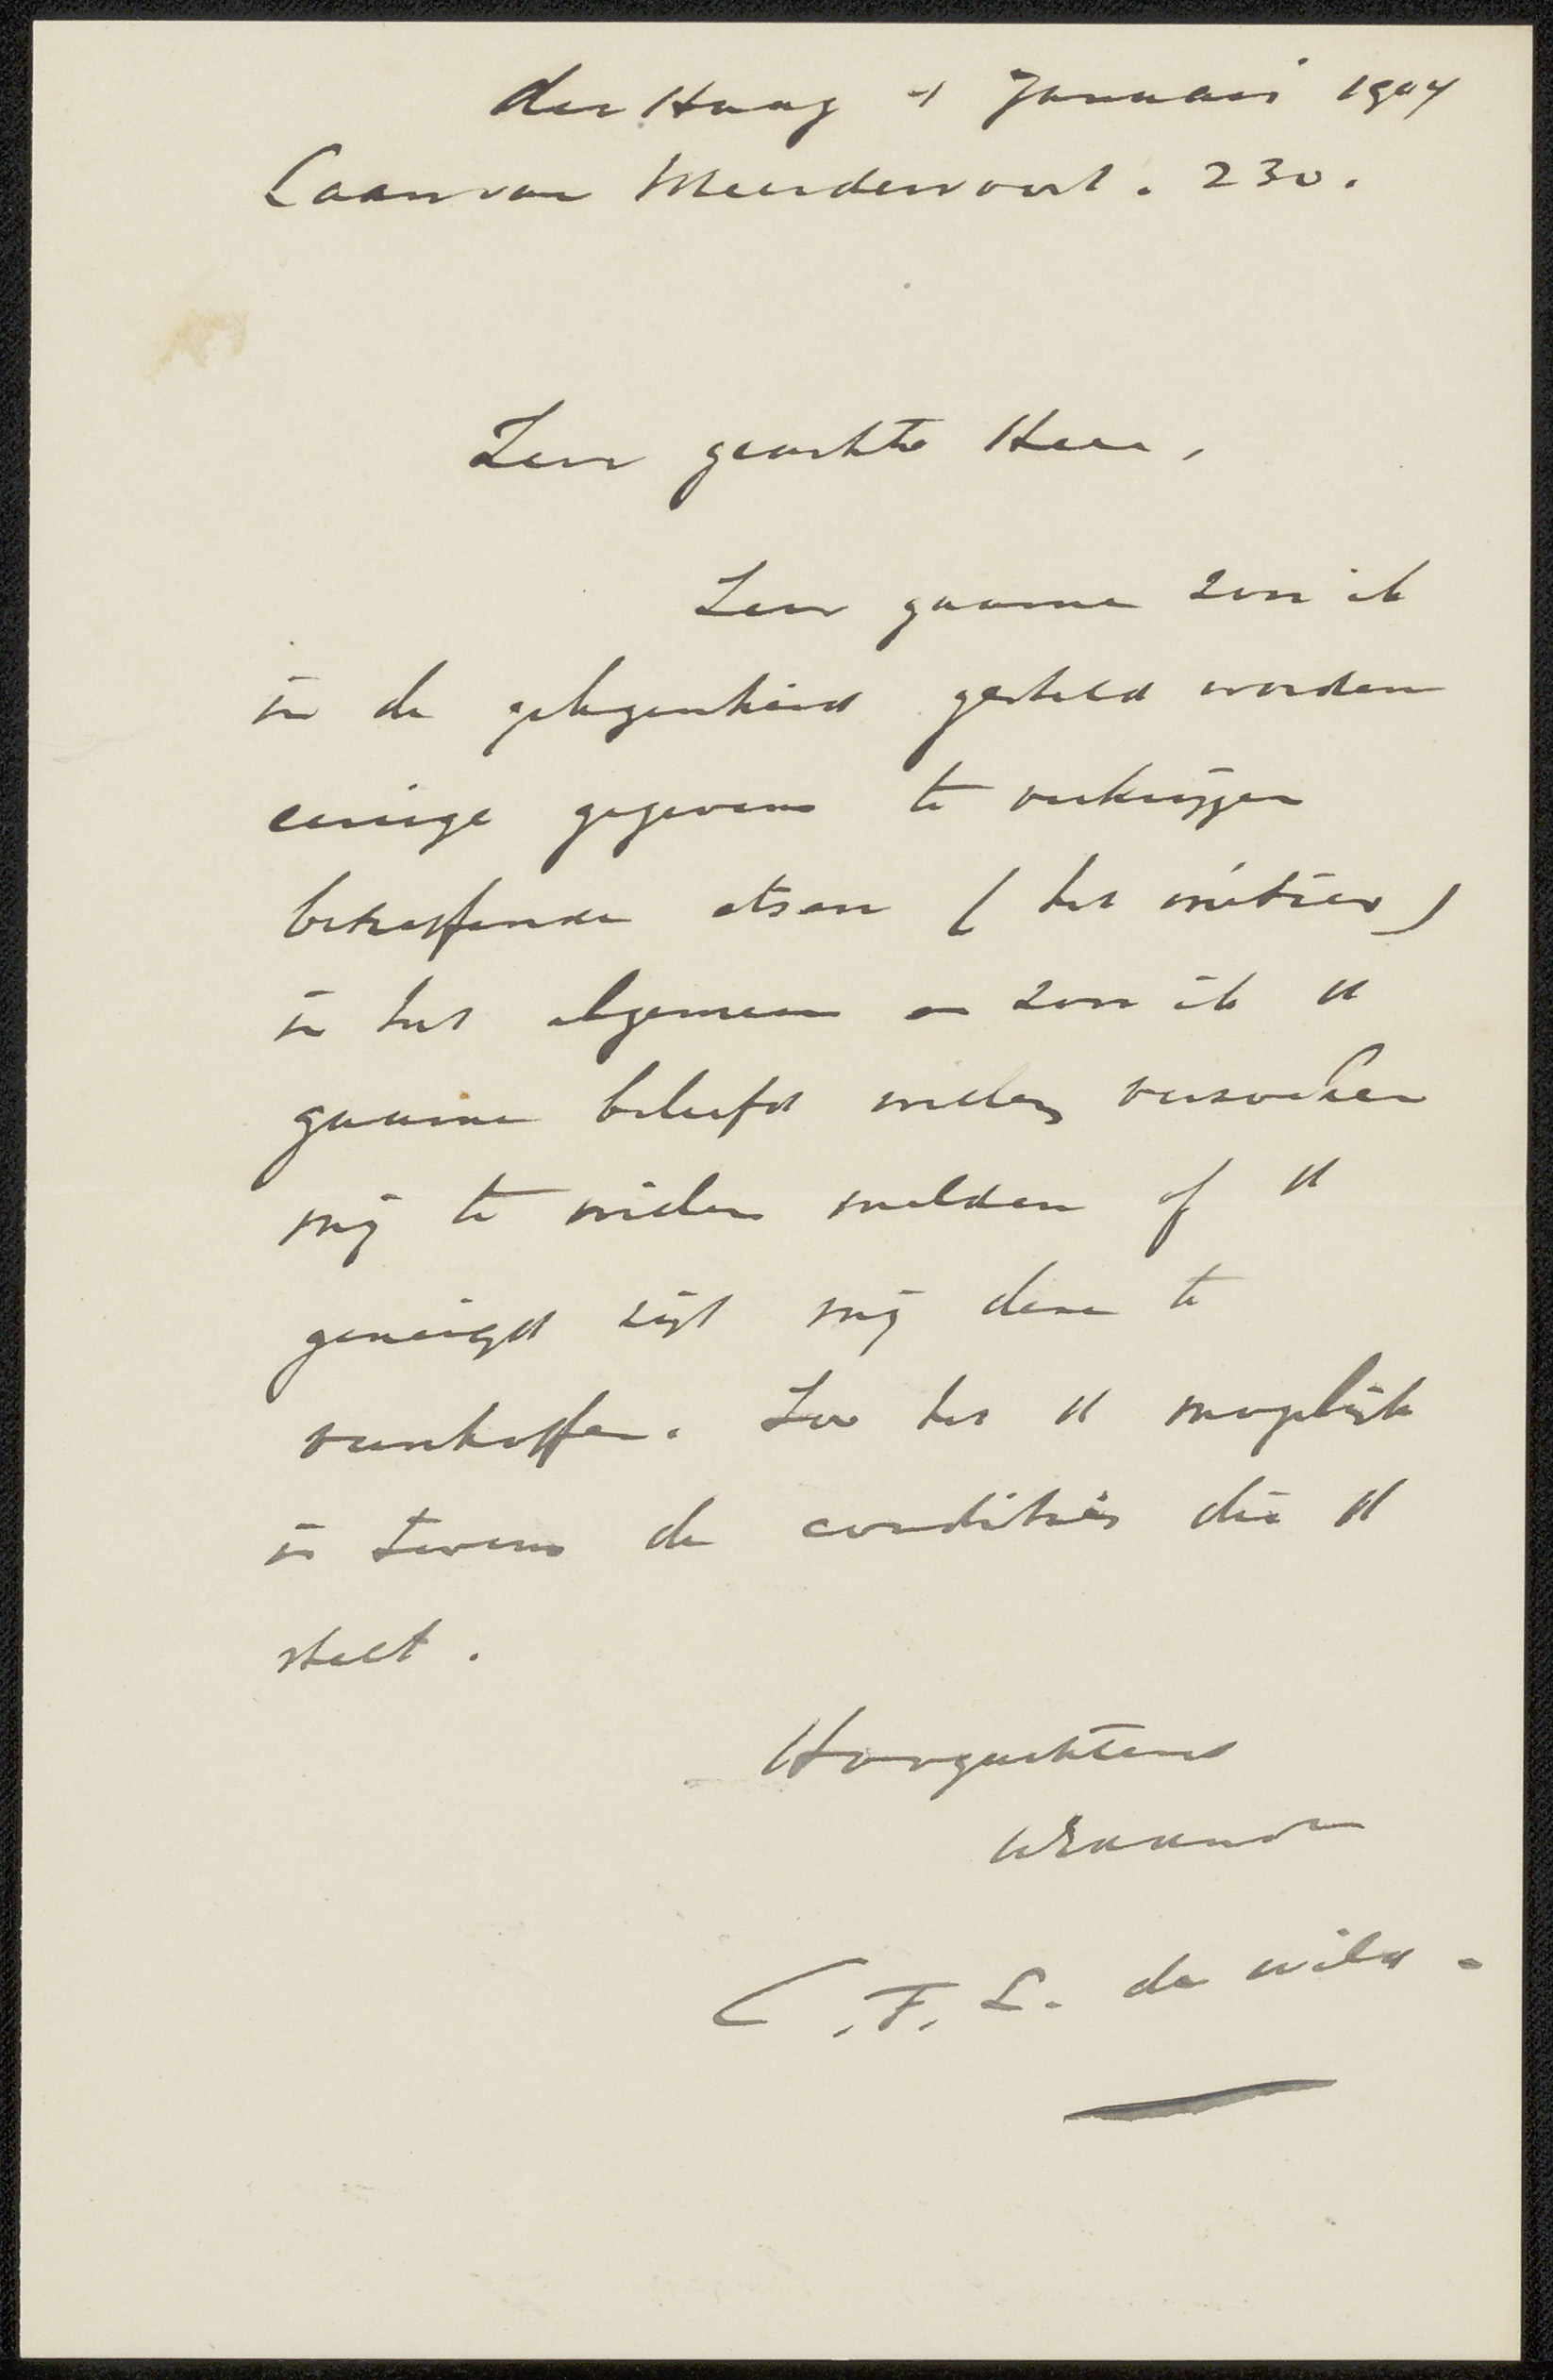 den Haag 4 Januari 1904
Laan van Meerdervoort. 230.
Zeer geachte Heer,
Zeer gaarne zou ik
in de gelegenheid gesteld worden
eenige gegevens te verkrijgen
betreffende etsen (het métier)
in het algemeen en zou ik U
gaarne beleefd willen verzoeken
mij te willen melden of U
geneigd zijt mij deze te
verschaffen. Zoo het U mogelijk
is tevens de condities die U
stelt.
Hoogachtend
C. F. L. de Wild.